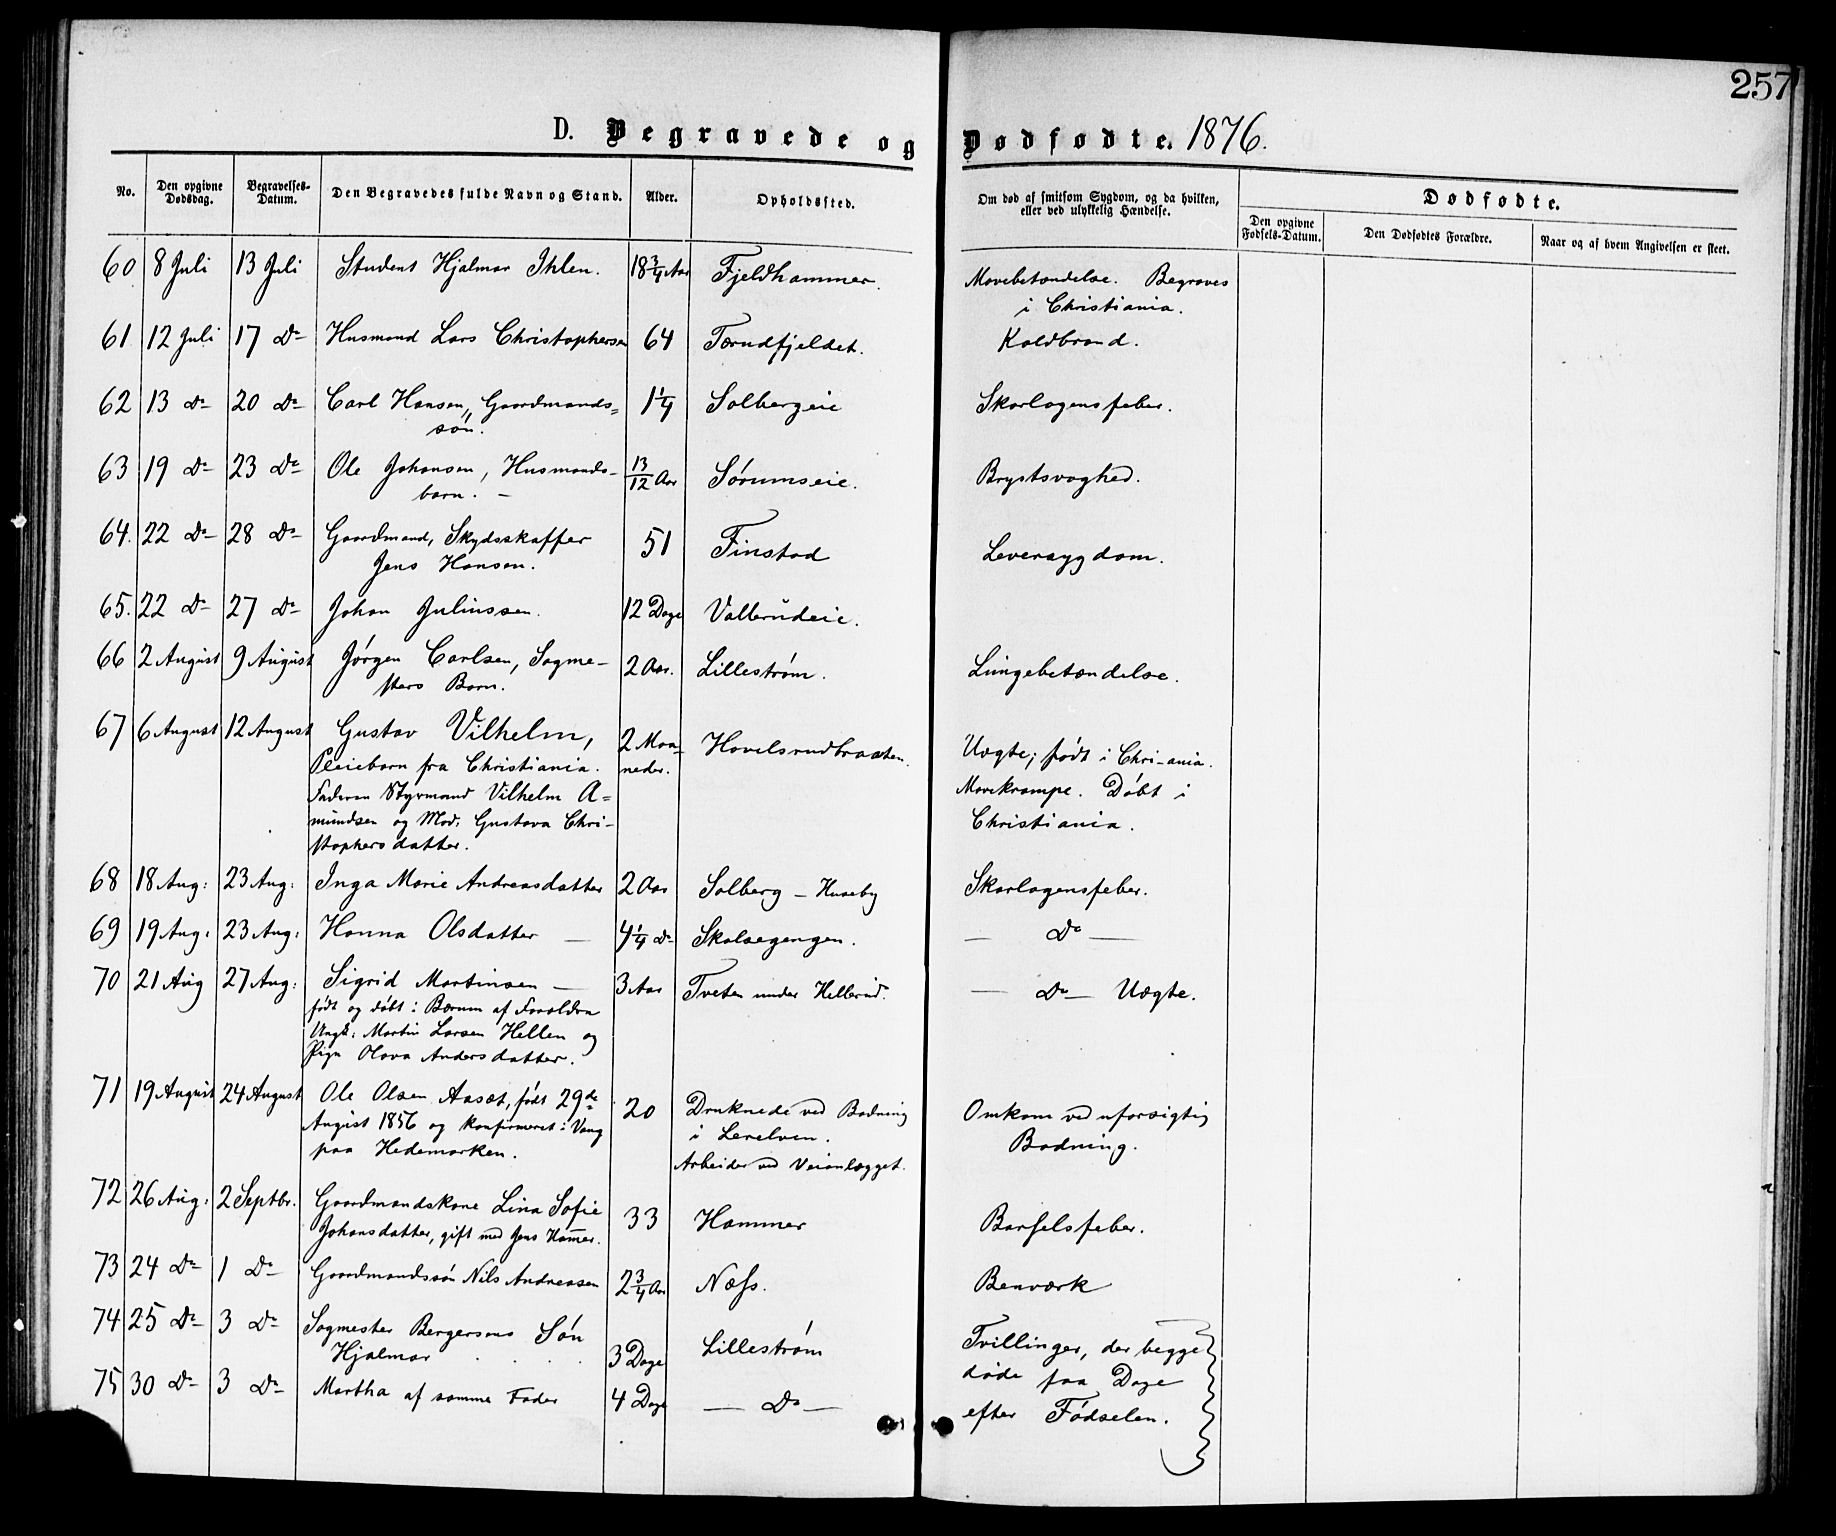 257
D. Begravede og Dødfødte. 1876.
No. Den opgivne Dødsdag. Begravelses-Datum. Den Begravedes fulde Navn og Stand. Alder. Opholdssted. Om død af smitsom Sygdom, og da hvilken, eller ved ulykkelig Hændelse. Dødfødte.
Den opgivne Fødsels-Datum. Den Dødfødtes Forældre. Naar og af hvem Angivelsen er skeet.
60. 8 Juli 13 Juli Student Hjalmar Ihlen. 18 3/4 Aar Fjeldhammer. Mavebetændelse. Begraves
i Christiania.
61 12 Juli 17 Do Husmand Lars Christophersen 64 Tærudfjeldet. Koldbrand.
62 13 Do 20 Do Carl Hansen, Gaardmands= 1 1/4 Solbergeie Skarlagensfeber.
søn.
63 19 Do 23 Do Ole Johansen, Husmands- 13/12 Aar Sørumseie. Brystsvaghed.
barn. -
64. 22 Do 28 Do Gaardmand, Skydsskaffer 51 Finstad Leversygdom.
Jens Hansen.
65. 22 Do 27 Do Johan Juliussen. 12 Dage Vallerudeie.
66 2 August 9 August Jørgen Carlsen, Sagme- 2 Aar. Lillestrøm. Lungebetændelse.
sters Barn.
67 6 August 12 August Gustav Vilhelm, 2 Maa- Hovelsrudbraaten. Uægte; født i Chri-ania.
Pleiebarn fra Christiania. neder.
Faderen Styrmand Vilhelm A= Mavekrampe. Døbt i
mundsen og Mod. Gustava Chri- Christiania.
stophersdatter.
68 18 Aug: 23 Aug: Inga Marie Andreasdatter 2 Aar Solberg - Huseby Skarlagensfeber.
69 19 Aug: 23 Aug: Hanna Olsdatter - 4 1/4 Do Skalsegengen. - Do -
70 21 Aug 27 Aug: Sigrid Martinsen - 3 Aar Tveten under Hellerud. - Do - Uægte.
født og døbt i Bærum af Forældre
Ungk: Martin Larsen Hellen og
Pige Olava Andersdatter.
71 19 August 24 August Ole Olsen Aasæt, født 29de 20 Druknede ved Badning Omkom ved uforsigtig
August 1856 og konfirmeret i Vang i Lerelven. Badning.
paa Hedemarken. Arbeider ved Veianlægget.
72 26 Aug: 2 Septbr. Gaardmandskone Lina Sofie 33 Hammer Barselsfeber.
Johansdatter, gift med Jens Hamer.
73 24 Do 1 Do Gaardmandssøn Nils Andreasen 2 3/4 Aar Næss. Benværk
74 25 Do 3 Do Sagmester Bergersens Søn 3 Dage Lillestrøm Tvillinger, der begge
Hjalmar
75 30 Do 3 Do Martha af samme Fader 4 Dage - Do - døde faa Dage
efter Fødselen.